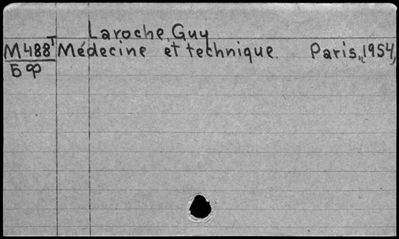 Laroche, Guy
M488т Médecine et technique. Paris, 1954,
БФ